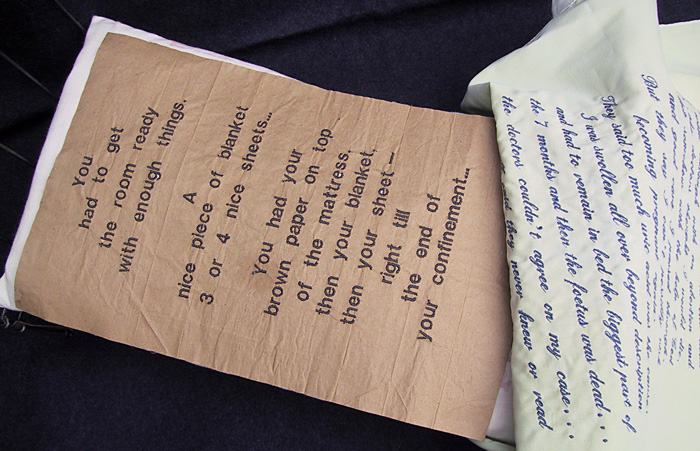 You
had to get
the room ready
with enough things.
A
nice piece of blanket
3 or 4 nice sheets...
You had your
brown paper on top
of the mattress,
then your blanket,
then your sheet —
right till
the end of
your confinement...
But they
becoming
They said too much uric
I was swollen all over beyond description
and had to remain in bed the biggest part of
the 7 months and then the foetus was dead...
the doctors couldn't agree on my case...
they never knew or read